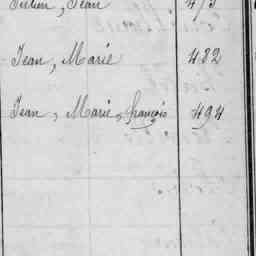 Julien, Jean 475
Jean, Marie 482
Jean, Marie, françois 494